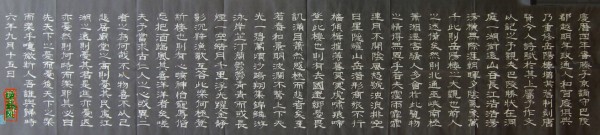 慶曆四年春滕子京謫守巴陵
郡越明年政通人和百廢具興
乃重修岳陽樓增其舊制刻唐
賢今人詩賦於其上屬予作文
以記之予觀夫巴陵勝狀在洞
庭一湖銜遠山吞長江浩浩湯
湯橫無際涯朝暉夕陰氣象萬
千此則岳陽樓之大觀也前人
之述備矣然則北通巫峽南極
瀟湘遷客騷人多會於此覽物
之情得無異乎若夫霪雨霏霏
連月不開陰風怒號濁浪排空
日星隱曜山岳潛形商旅不行
檣傾楫摧薄暮冥冥虎嘯猿啼
登斯樓也則有去國懷鄉憂讒畏
譏滿目蕭然感極而悲者矣至
若春和景明波瀾不驚上下天
光一碧萬頃沙鷗翔集錦鱗游
泳岸芷汀蘭郁郁青青而或長
煙一空皓月千里浮光躍金靜
影沉璧漁歌互答此樂何極登
斯樓也則有心曠神怡寵辱偕
忘把酒臨風其喜洋洋者矣嗟
夫予嘗求古仁人之心或異二
者之為何哉不以物喜不以己
悲居廟堂之高則憂其民處江
湖之遠則憂其君是進亦憂退
亦憂然則何時而樂耶其必曰
先天下之憂而憂後天下之樂
而樂乎噫微斯人吾誰與歸時
六年九月十五日